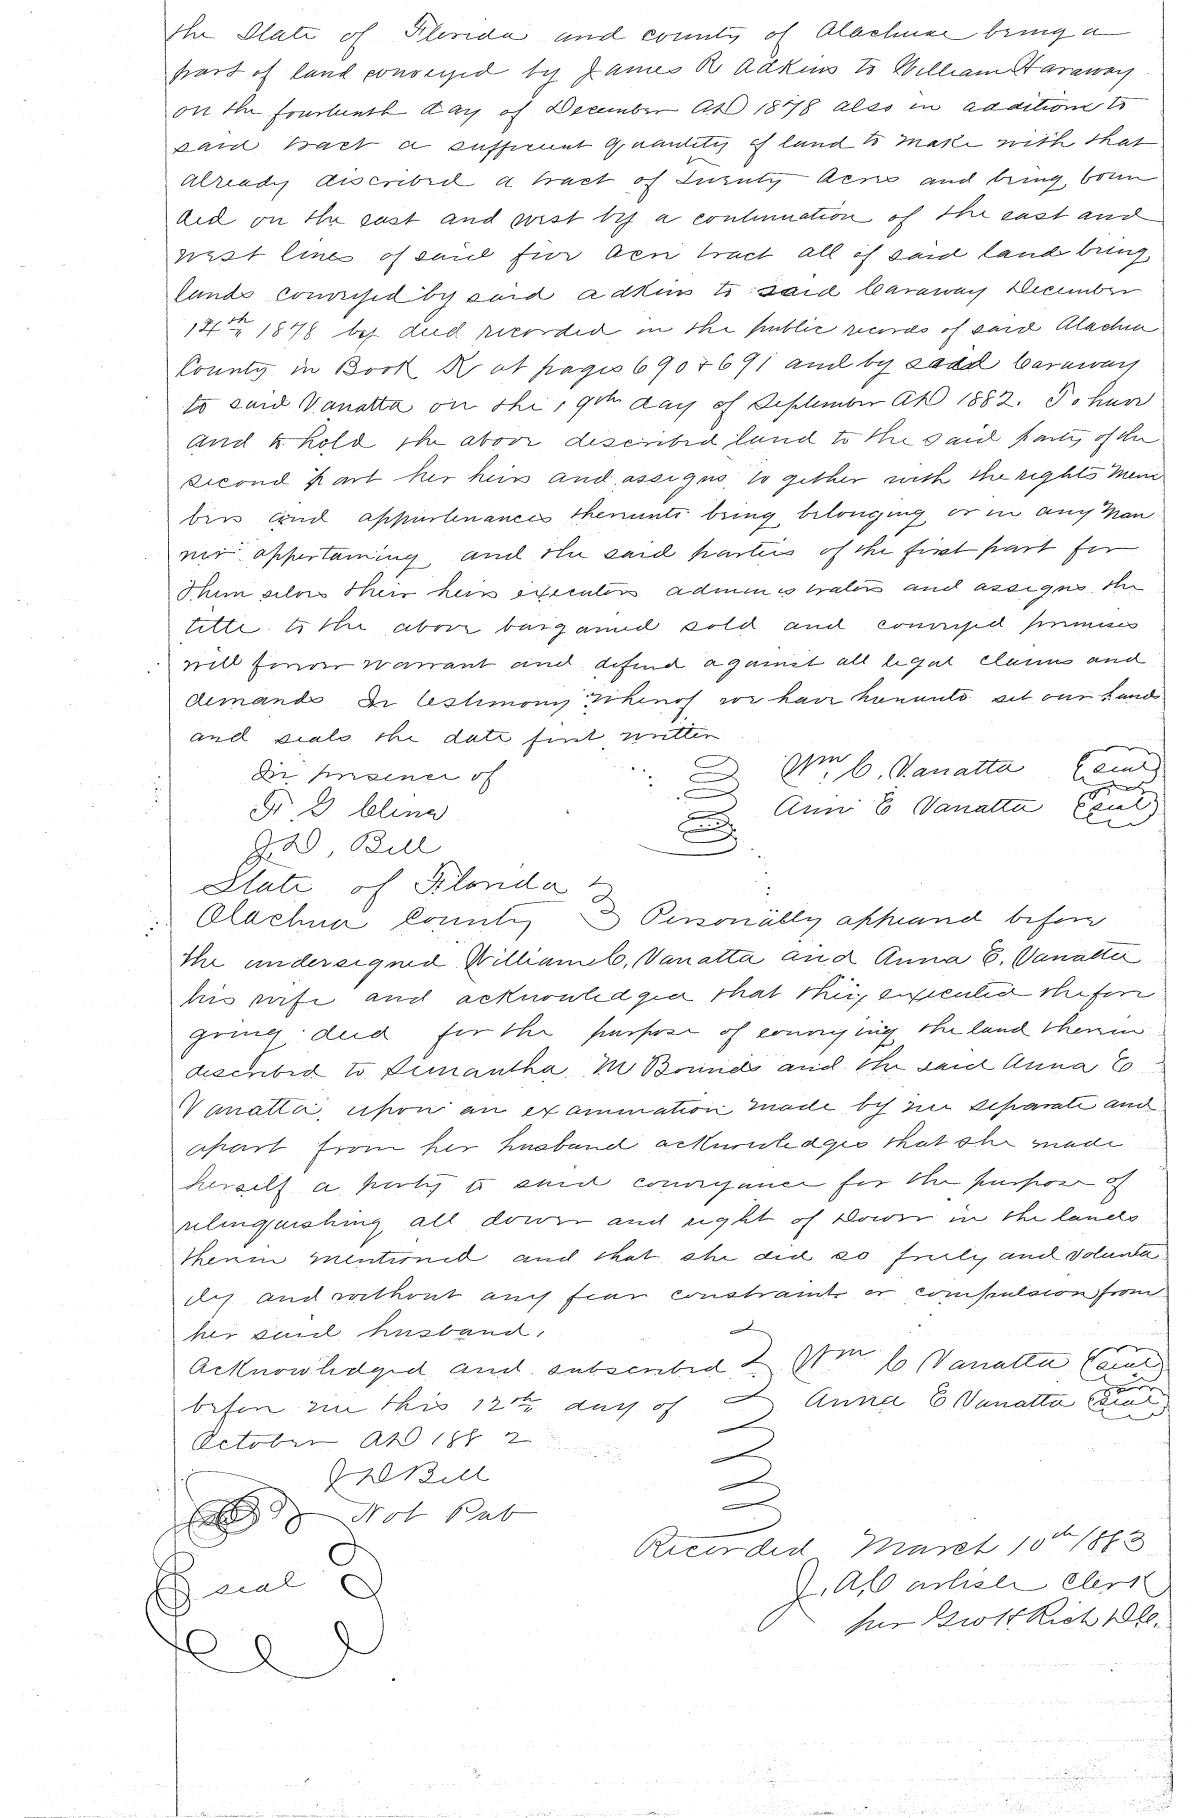 the State of Florida and county of Alachua being a
part of land conveyed by James R Adkins to William Haraway
on the fourteenth day of December AD 1878 also in addition to
said tract a sufficient quantity of land to make with that
already discribed a tract of Twenty Acres and being boun
ded on the east and west by a continuation of the east and
west lines of said five Acre tract all of said land being
lands conveyed by said adkins to said Caraway December
14th 1878 by deed recorded in the public records of said Alachua
County in Book K at pages 690 & 691 and by said Caraway
to said Vanatta on the 19th day of September AD 1882. To have
and to hold the above described land to the said party of the
second part her heirs and assigns to gether with the rights Mem
bers and appurtenances thereunto being belonging or in any Man
ner appertaining and the said parties of the first part for
Them selves their heirs executors administrators and assigns the
title to the above bargained sold and conveyed premises
will forever warrant and defend against all legal claims and
demands In testimony Whereof we have hereunto set our hands
and seals the date first written
In presence of Wm. C. Vanatta Seal
F. G Cline Ann E Vanatta Seal
J. D, Bell
State of Florida
Alachua County Personally appeared before
the undersigned William C. Vanatta and Anna E. Vanatta
his wife and acknowledged that they executed the fore
going deed for the purpose of conveying the land therein
described to Simantha M Bounds and the said Anna E
Vanatta, upon an examination made by me separate and
apart from her husband acknowledges that she made
herself a party to said conveyance for the purpose of
relinquishing all dower and right of Dower in the lands
therein mentioned and that she did so freely and volunta
rily and without any fear constraint or compulsion from
her said husband.
Acknowledged and subscribed Wm C Vanatta Seal
before me this 12th day of Anna E Vanatta Seal
October AD 1882
J D Bell
Not Pub
seal
Recorded March 10th 1883
J. A. Carlisle Clerk
per Geo H Rich DC.